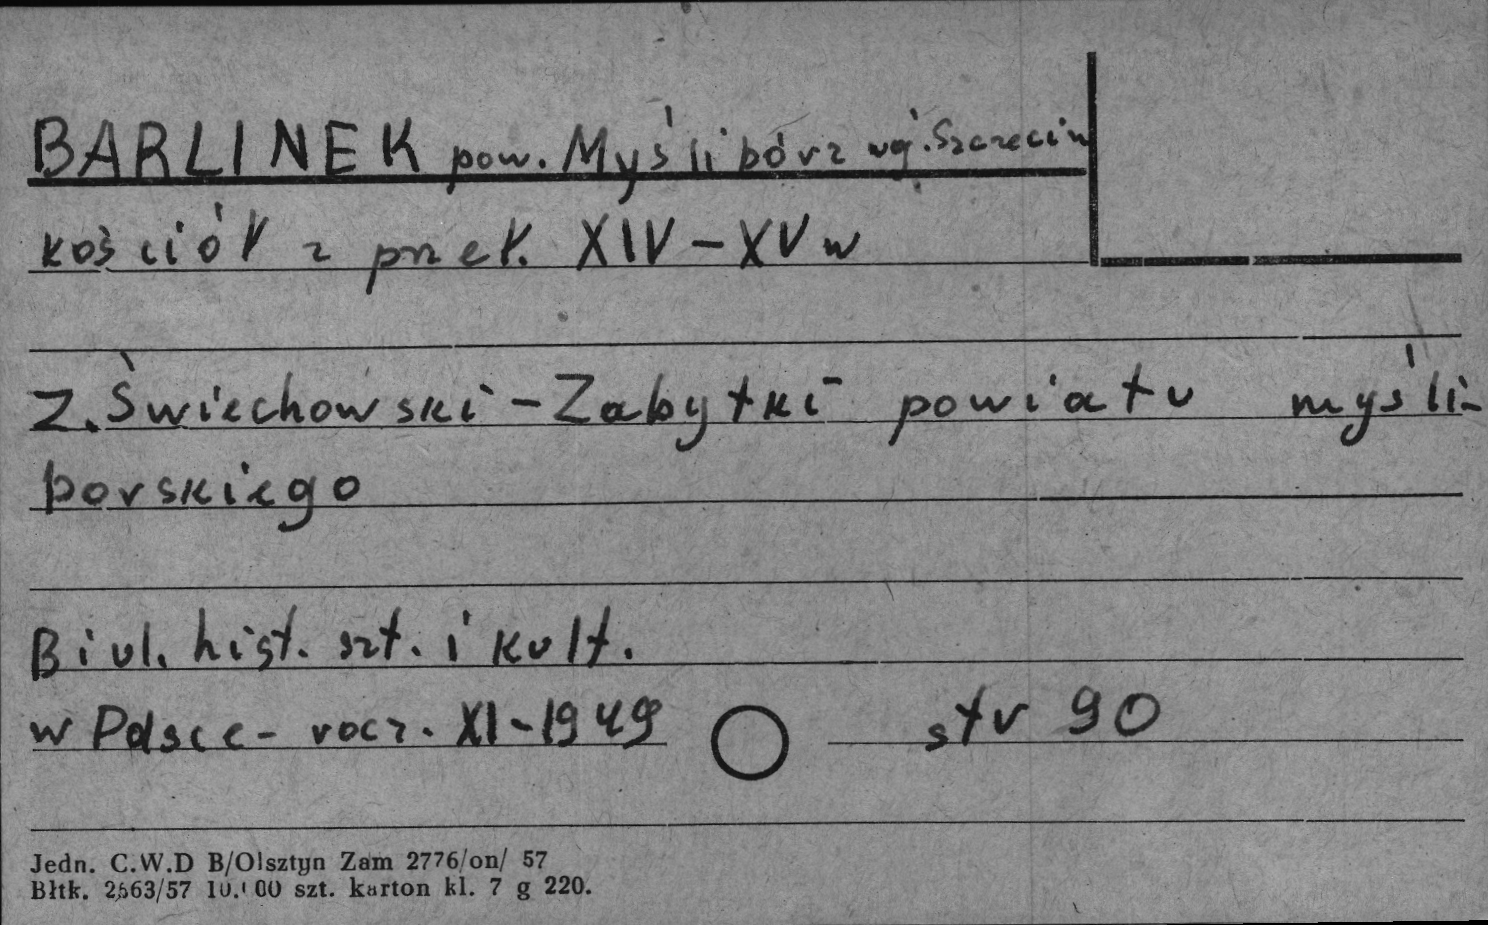 BARLINEK pow. Myślibórz woj. Szczecin
kościół z przeł. XIV – XV w
Z. Świechowski – Zabytki powiatu myśli-
borskiego
Biul. hist. szt. i kult.
w Polsce – rocz. XI – 1949 str 90
Jedn. C.W.D B/Olsztyn Zam 2776/on/ 57
Błtk. 2563/57 10.000 szt. karton kl. 7 g 220.